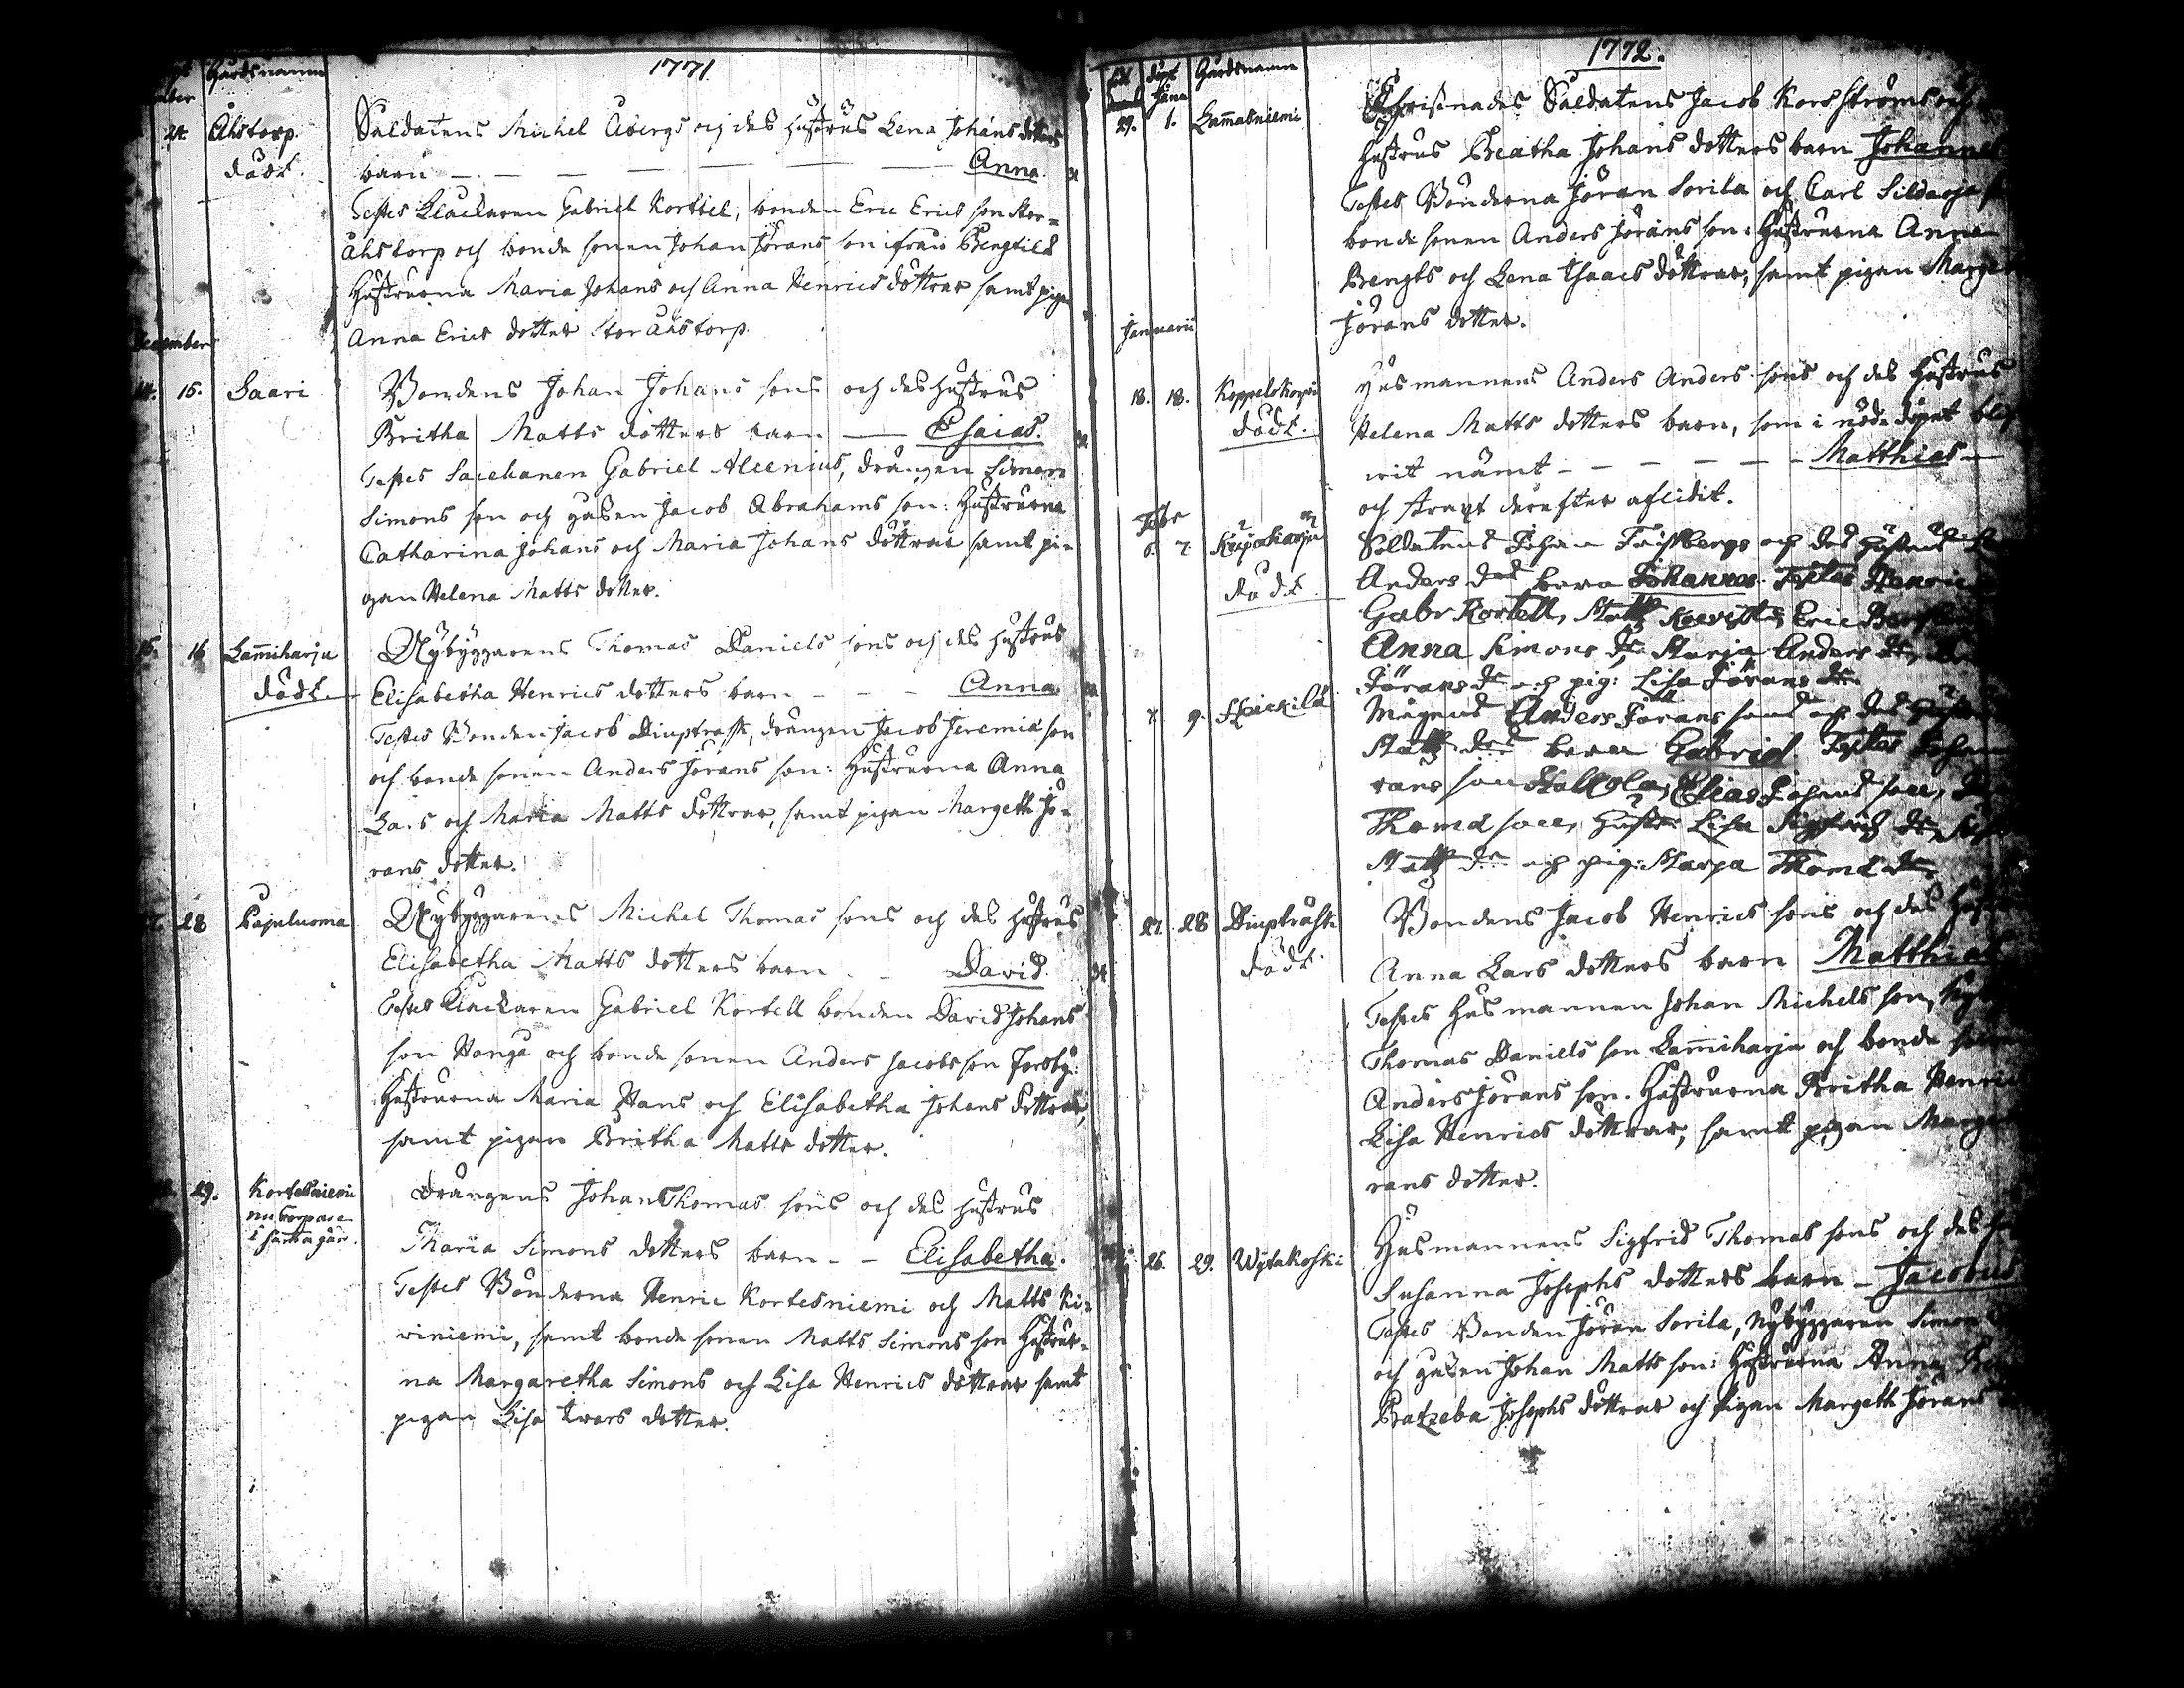 1771
Gårdsnamn
24. Åhstorp. Soldatens Michel Åbergs och des hustrus Lena Johans dotters
död. barn — — — — Anna.
Testes Klockaren Gabriel Korttel, bonden Eric Erics son Stor-
åhstorp och bonde sonen Johan Jörans son ifrån Bengtils
Hustruerna Maria Johans och Anna Henrics döttrar samt pigan
Anna Erics dotter Storåhstorp.
December
14. 15. Saari Bondens Johan Johans sons och des hustrus
Britha Matts dotters barn — Esaias.
Testes Gabriel Alcenius, drängen Simon
Simons son och gåsen Jacob Abrahams son: Hustruerna
Catharina Johans och Maria Johans döttrar samt pi-
gan Helena Matts dotter.
16 Lam̄iharju Nybyggarens Thomas Daniels sons och des hustrus
död. Elisabetha Henrics dotters barn - - - Anna
Testes Bonden Jacob Diuptrask, drängen Jacob Jeremiæ son
och bonde sonen Anders Jörans son: Hustruerna Anna
Lars och Maria Matts döttrar, samt pigan Margeth Jö-
rans dotter.
28 Pajuluoma Nybyggarens Michel Thomas sons och des hustrus
Elisabetha Matts dotters barn - - David.
Testes Klockaren Gabriel Kortell bonden David Johans
son Hanga och bonde sonen Anders Jacobs son Forsby.
Hustruerna Maria Hans och Elisabetha Johans döttrar,
samt pigan Britha Matts dotter.
29. Kortesniemi Drängens Johan Thomas sons och des hustrus
nu torpare
i sam̄a gård. Maria Simons dotters barn - - Elisabetha.
Testes Bönderna Henric Kortesniemi och Matts Ki-
viniemi, samt bonde sonen Matts Simons son Hustruer-
na Margaretha Simons och Lisa Henrics döttrar samt
pigan Lisa Ivars dotter.
1772.
född döpt Gårdsnamn
29. 1. Lam̄asniemi Christnades Soldatens Jacob Korsströms och
hustrus Beatha Johans dotters barn Johannes
Testes Bönderna Jöran Sorila och Carl
bonde sonen Anders Jörans son: Hustruerna Anna
Bengts och Lena Isaacs döttrar, samt pigan
Jörans dotter.
Januarii
18. 18. Husmannens Anders Anders sons och des hustrus
död. Helena Matts dotters barn, som i nöde döpt blif-
wit nämt - - - - - - Matthias -
och straxt derefter aflidit.
Febr
6. 7. Soldatens Johan och des hustrus
död Anders dtrs barn Johannes. Testes Henric
Gabr Kortell, Eric
Anna Simons dr Maria Anders dr,
Jörans dr och pig: Lisa Jörans dr.
7. 9. Mågens Anders Jörans sons och des hustrus
barn Gabriel. Testes Johan
rans son Elias Johans son,
Thomæ son, hustr: Lisa
Matts dr och pig: Marja Thomæ dr
27. 28 Diuptråsk. Bondens Jacob Henrics sons och des hustrus
död. Anna Lars dotters barn Matthias
Testes Husmannen Johan Michels son,
Thomas Daniels son Lam̄iharju och bonde sonen
Anders Jörans son. Hustruerna Britha Henrics
Lisa Henrics döttrar, samt pigan
rans dotter.
26. 29. Wytakoski Husmannens Sigfrid Thomas sons och des
Susanna Josephs dotters barn - Jacobus
Testes Bonden Jöran Sorila, Nybyggaren Simon
och gåsen Johan Matts son: Hustruerna Anna
Batzeba Josephs döttrar och Pigan Margeth Jörans